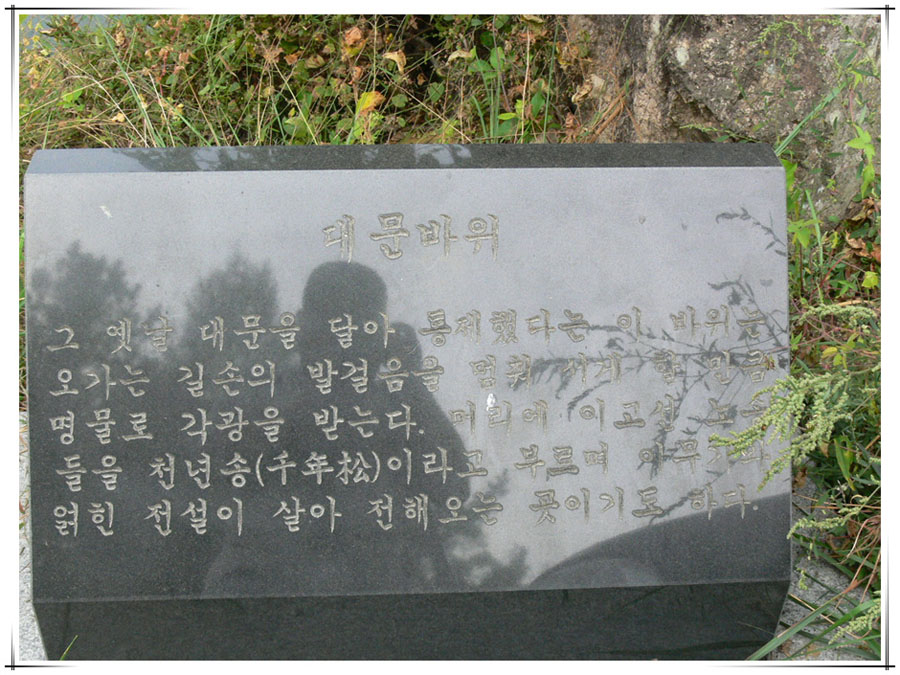 대문바위
그 옛날 대문을 달아 통제했다는 이 바위는
오가는 길손의 발걸음을 멈춰 서게 할 만큼
명물로 각광을 받는다. 머리에 이고선 노송
들을 천년송(千年松)이라고 부르며
얽힌 전설이 살아 전해오는 곳이기도 하다.